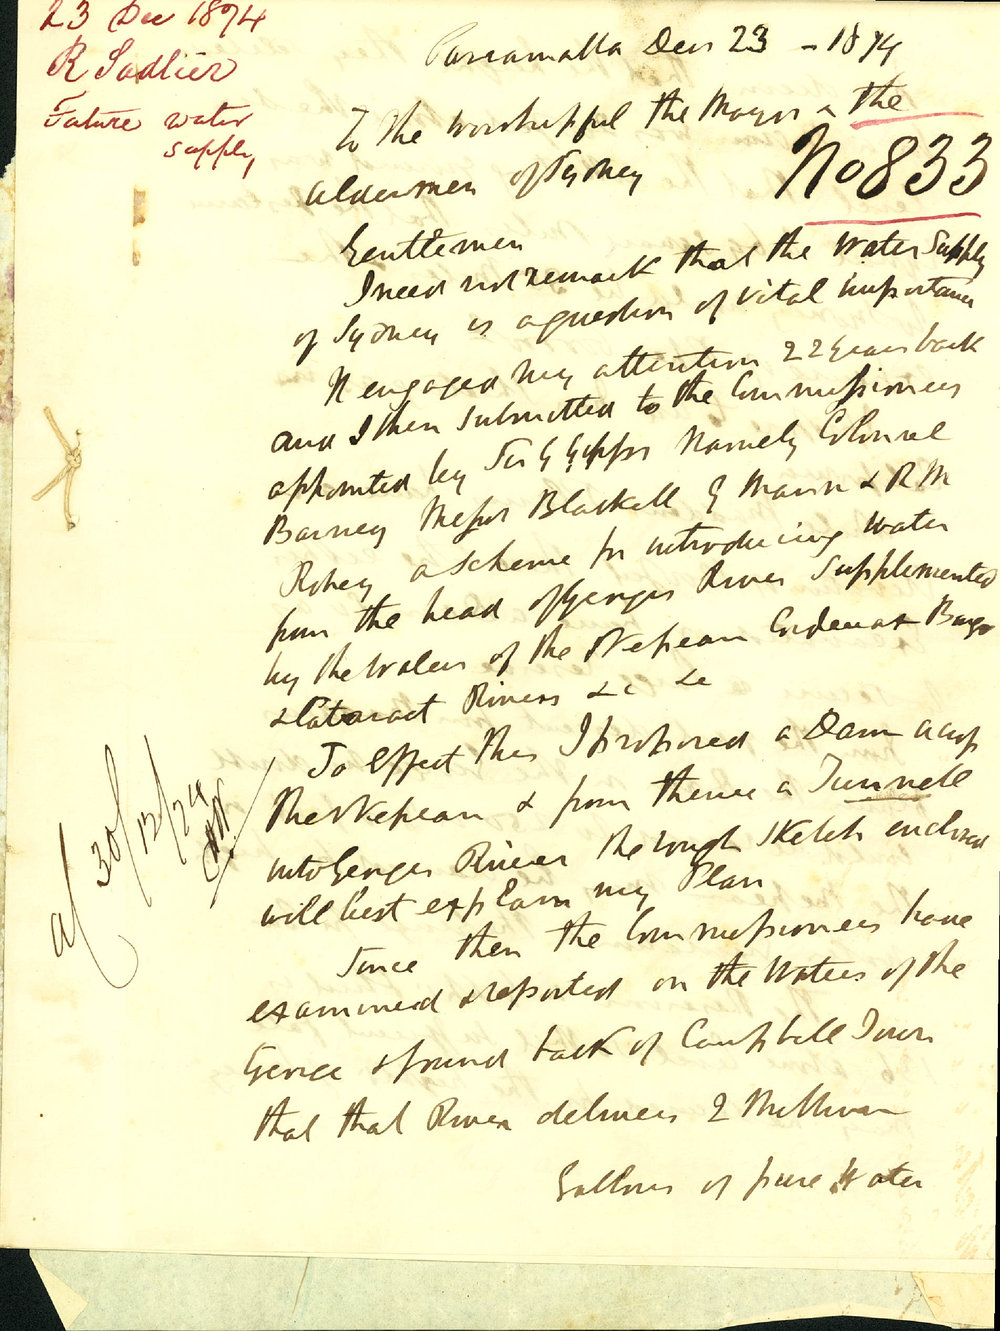 23 Dec 1874
R Sadlier
Future water
supply
Parramatta Decr 23 - 1874
To the Worshipful the Mayor & the
No 833
Aldermen of Sydney
Gentlemen
I need not remark that the Water Supply
of Sydney is a question of vital importance
It engaged my attention 22 years back
and I then submitted to the Commissioners
appointed by Sir G Gipps Namely Colonel
Barney Messrs Blaxell G Mann & R M
Robey a scheme for introducing Water
from the head of Georges River Supplemented
by the Waters of the Nepean Cordeaux Bargo
& Cataract Rivers &c &c
To effect this I proposed a Dam across
the Nepean & from thence a Tunnell
into Georges River the rough sketch enclosed
will best explain my Plan
Since then the Commissioners have
examined & reported on the Waters of the
George & found back of Campbell Town
that that River delivers 2 Million
Gallons of pure Water
30/12/74